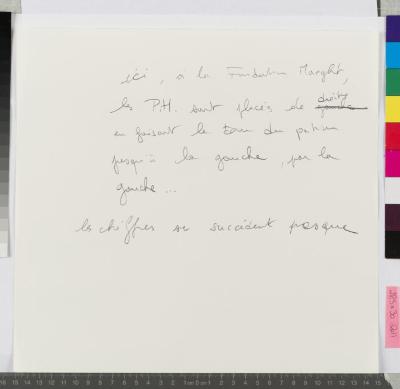 ici, à la Fondation Maeght,
les P.H. sont placés de droite
en faisant le tour du patio
jusqu'à la gauche, par la
gauche...
les chiffres se succèdent presque